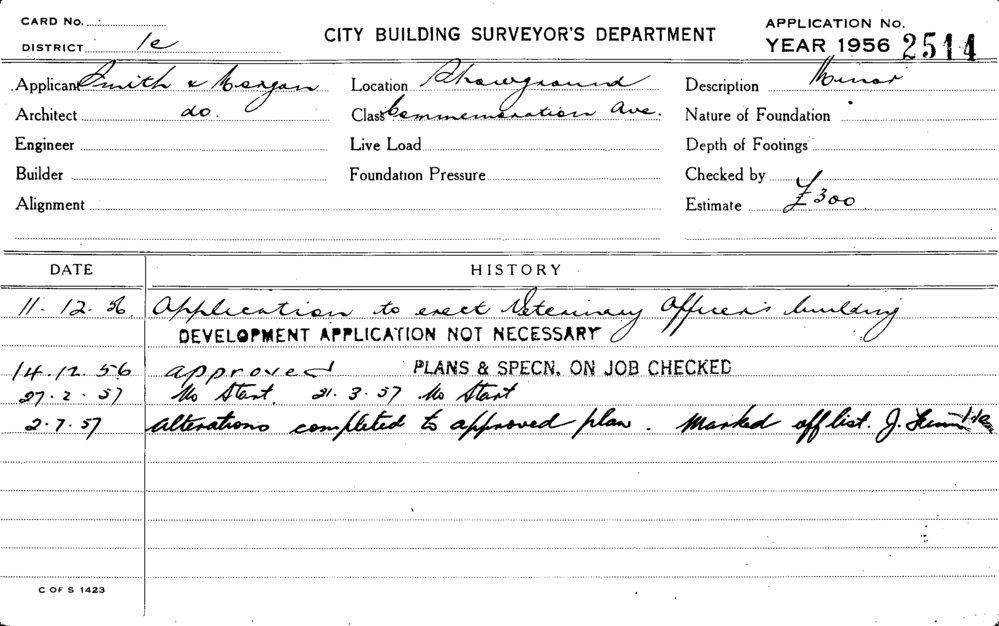 CARD No.
DISTRICT 1e
CITY BUILDING SURVEYOR'S DEPARTMENT
APPLICATION No.
YEAR 1956 2514
Applicant Smith & Morgan
Location Showground
Description Minor
Architect do.
Class Commemoration Ave.
Nature of Foundation
Engineer
Live Load
Depth of Footings
Builder
Foundation Pressure
Checked by
Alignment
Estimate £300
DATE HISTORY
11. 12. 56 Application to erect Veterinary Officer's building
DEVELOPMENT APPLICATION NOT NECESSARY
14.12.56 approved PLANS & SPECN. ON JOB CHECKED
27.2.57 No Start. 21.3.57 No Start
2.7.57 Alterations completed to approved plan. Marked off list. J.
C OF S 1423